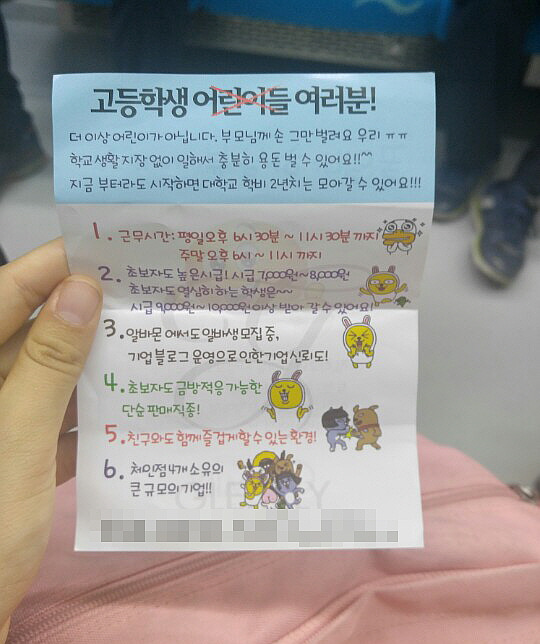 고등학생 어린이들 여러분!
더 이상 어린이가 아닙니다. 부모님께 손 그만 벌려요 우리 ㅠㅠ
학교생활 지장 없이 일해서 충분히 용돈 벌 수 있어요!!^^
지금 부터라도 시작하면 대학교 학비 2년치는 모아갈 수 있어요!!!
1. 근무시간: 평일오후 6시 30분 ~ 11시 30분 까지
주말 오후 6시 ~ 11시 까지
2. 초보자도 높은시급! 시급 7,000원~8,000원
초보자도 열심히 하는 학생은~~
시급 9,000원 ~ 10,000원 이상 받아 갈 수 있어요!!
3. 알바몬 에서도 알바생 모집 중,
기업 블로그 운영으로 인한 기업 신뢰도!
4. 초보자도 금방적응 가능한
단순 판매직종!
5. 친구와도 함께 즐겁게 할 수 있는 환경!
6. 체인점 4개 소유의
큰 규모의 기업!!